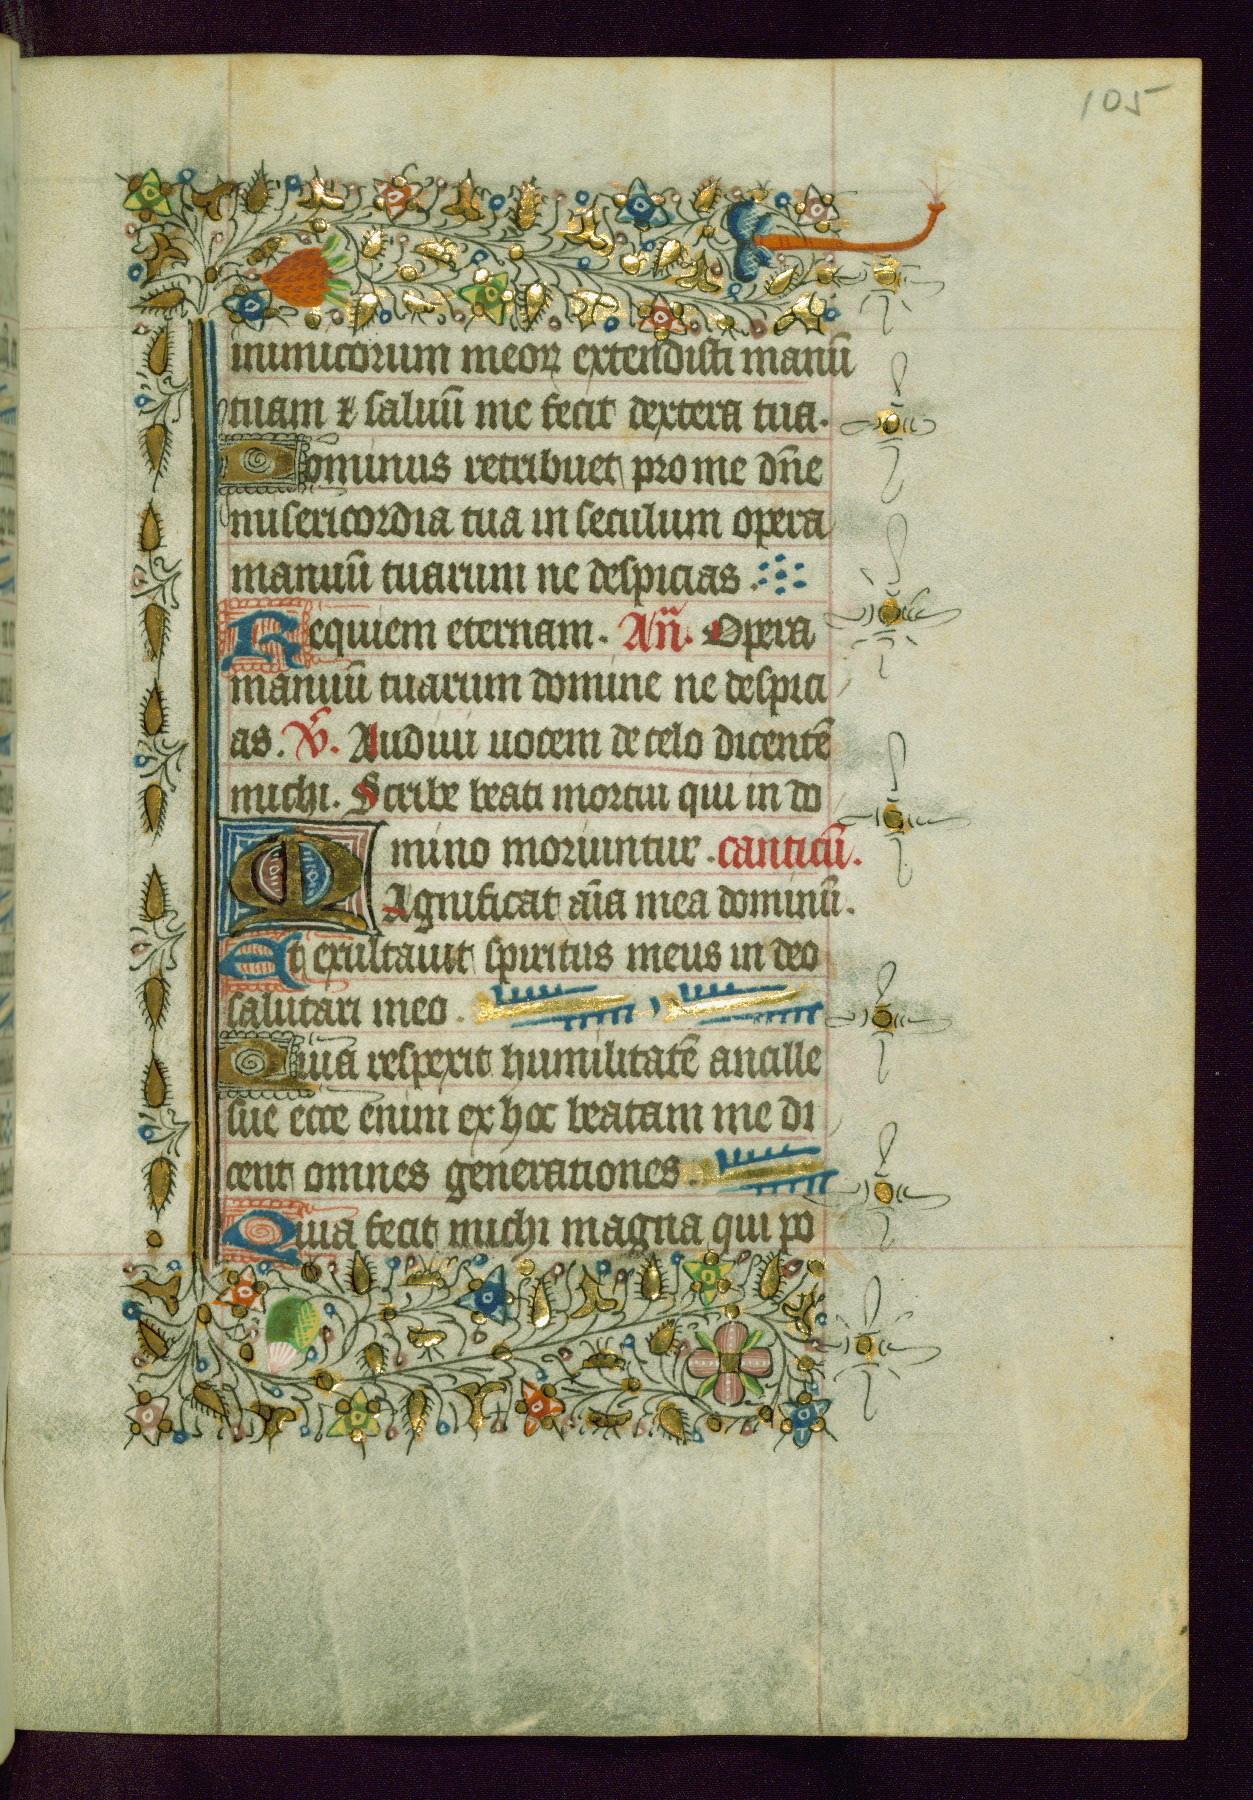 105
inimicorum meoꝝ extendisti manū
tuam ⁊ saluū me fecit dextera tua.
Dominus retribuet pro me dn̄e
misericordia tua in seculum opera
manuū tuarum ne despicias.
Requiem eternam. An̄. Opera
manuū tuarum domine ne despici
as. V̄. Audiui uocem de celo dicentē
michi. Scribe beati mortui qui in do
mino moriuntur. canticū.
MAgnificat aīa mea dominū.
Et exultauit spiritus meus in deo
salutari meo.
Quia respexit humilitatē ancille
sue ecce enim ex hoc beatam me di
cent omnes generationes.
Quia fecit michi magna qui po